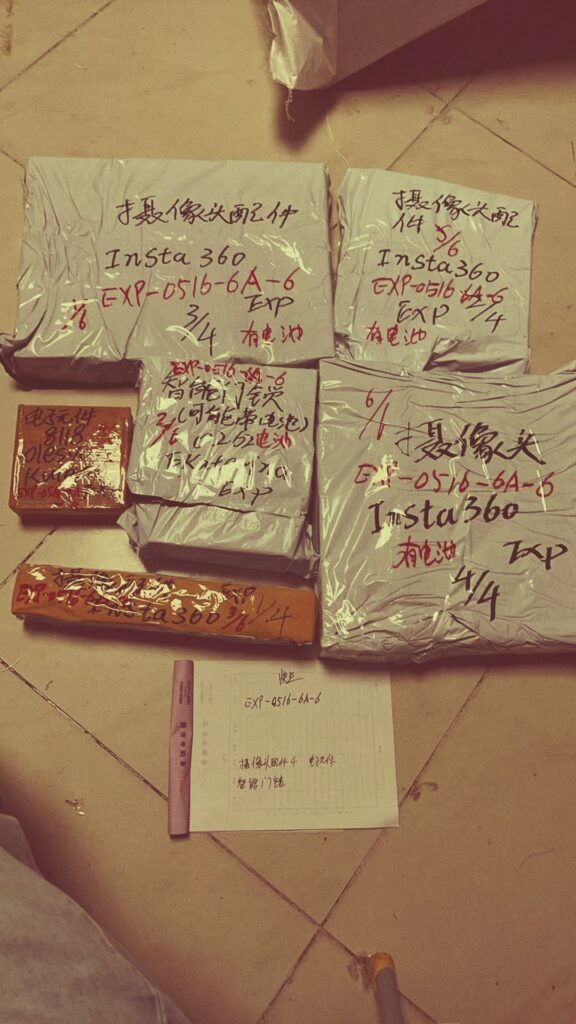 摄像头配件
Insta360
EXP-0516-6A-6
EXP
3/4
有电池
摄像头配
件
5/6
Insta360
EXP-0516-6A-6
EXP
2/4
有电池
EXP-0516-6A-6
智能门锁
(可能带电池)
电池
EXP
电子元件
8118
6/6
摄像头
EXP-0516-6A-6
Insta360
有电池
EXP
4/4
EXP
Insta360
3/6
1/4
EXP-0516-6A-6
摄像头配件4
智能门锁